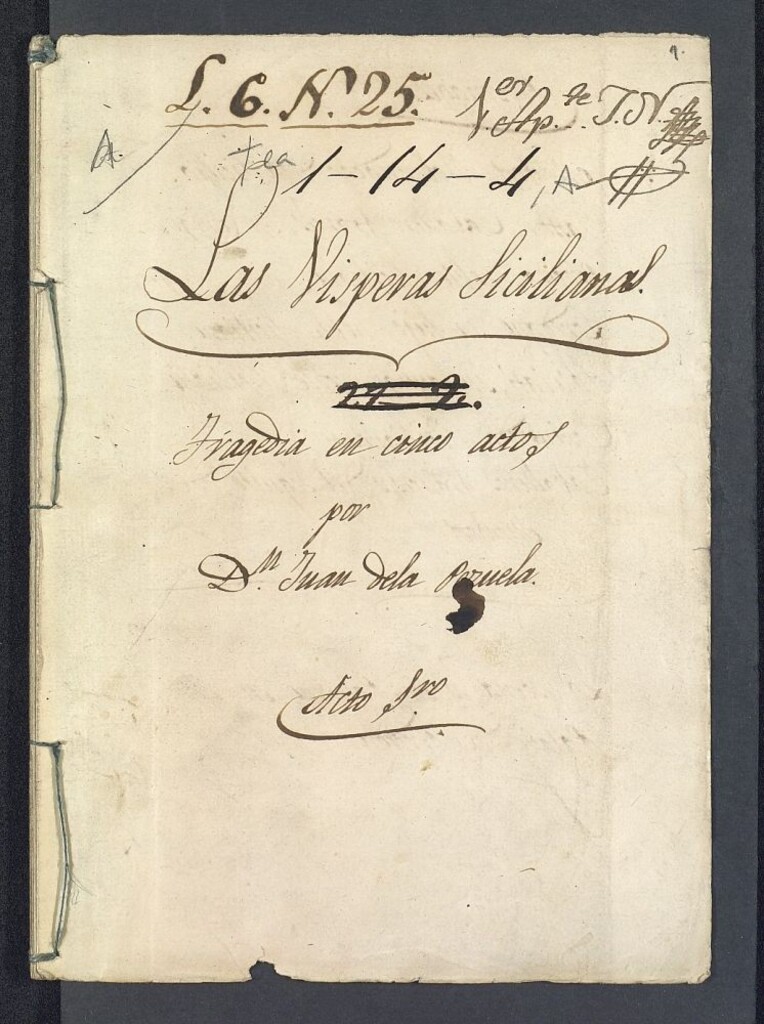 1.
L. 6. N.º 25.
1.er Ap.te J. N.
A.
Tea 1-14-4, A
Las Visperas Sicilianas.
Tragedia en cinco actos
por
D.n Juan dela Pezuela.
Acto 1ro